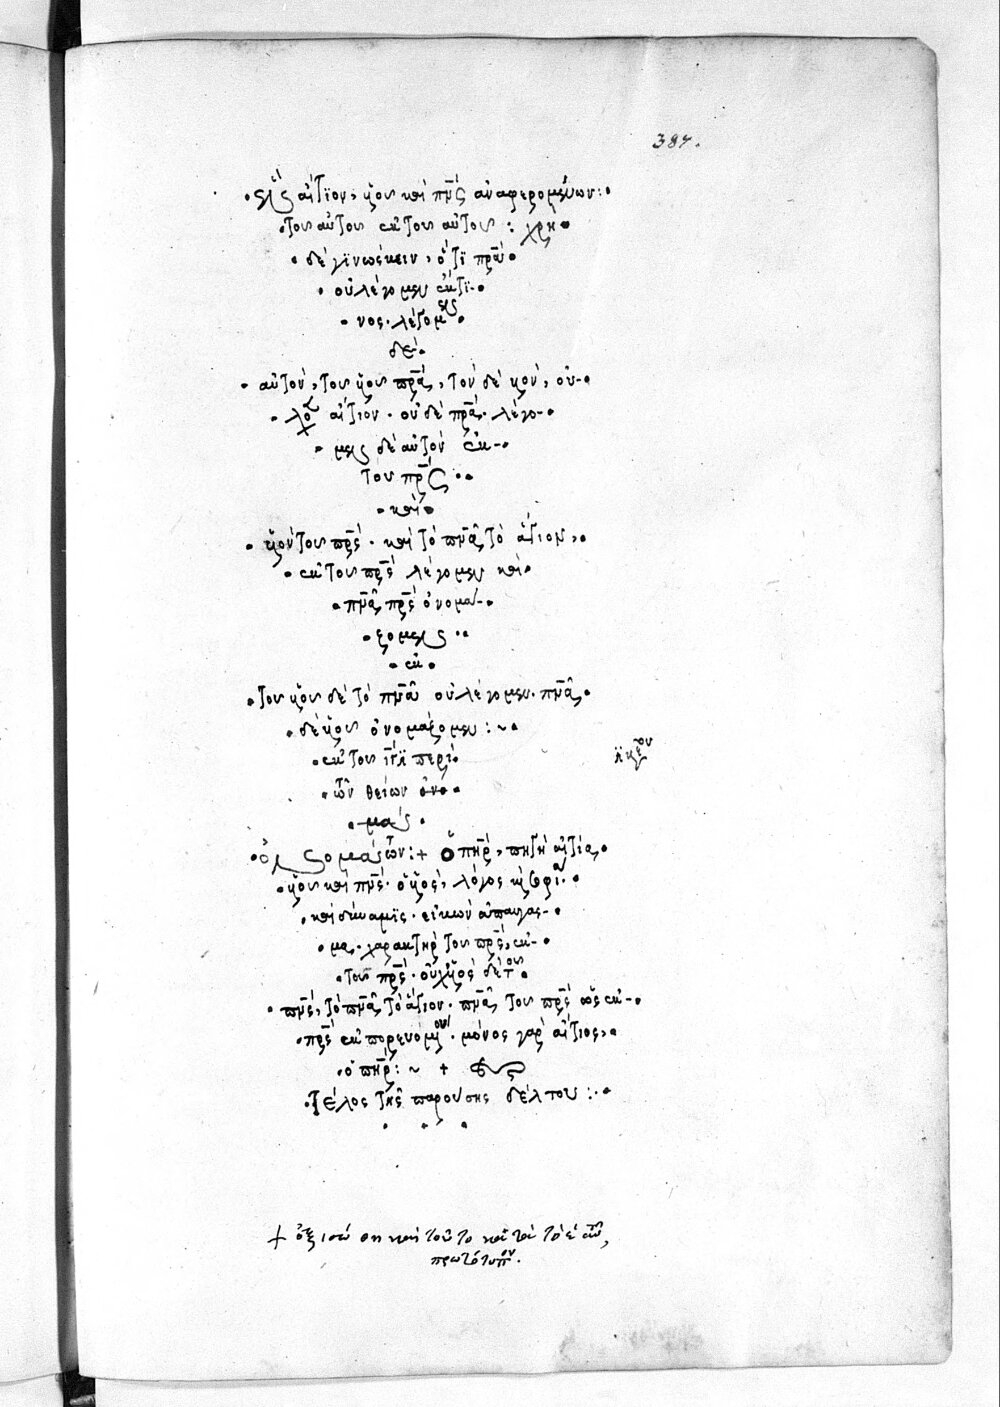 384.
εἰς αἴτιον, υἱοῦ καὶ πνς ἀναφερομένων:
τοῦ αὐτοῦ ἐκ τοῦ αὐτοῦ: χρὴ
δὲ γϊνώσκειν, ὅτϊ πρα
οὐ λέγομεν ἔκ τϊ-
νος. λέγομεν
δὲ
αὐτὸν, τοῦ υἱοῦ πρα, τὸν δὲ υν, οὐ-
αἴτιον. οὐδὲ πρα. λέγο-
μεν δὲ αὐτὸν ἐκ
τοῦ πρς
καὶ
υν τοῦ πρς. καὶ τὸ πνα τὸ ἅγιον,
ἐκ τοῦ πρς λέγομεν καὶ
πνα πρς ὀνομά-
ζομεν
ἐκ
τοῦ υἱοῦ δὲ τὸ πνα οὐ λέγομεν. πνα
δὲ υἱοῦ ὀνομάζομεν:~
ἐκ τοῦ περὶ
τῶν θείων ὀνο
μάς
ὀνομάτων:+ Ὁ πηρ, πηγὴ αἰτία,
υἱοῦ καὶ πνς. ὁ υς, λόγος
καὶ δύναμϊς. εἰκὼν ἀπαύγασ-
μα. χαρακτὴρ τοῦ πρς, ἐκ
τοῦ πρς. οὐχ υς δὲ τοῦ
πνς, τὸ πνα τὸ ἅγιον. πνα τοῦ πρς ὡς ἐκ
πρς ἐκπορευόμενον. μόνος γὰρ αἴτιος,
ὁ πηρ:~ +
Τέλος τῆς παρούσης δέλτου:
+ καὶ τοῦτο κατὰ τὸ
πρωτότυπον.